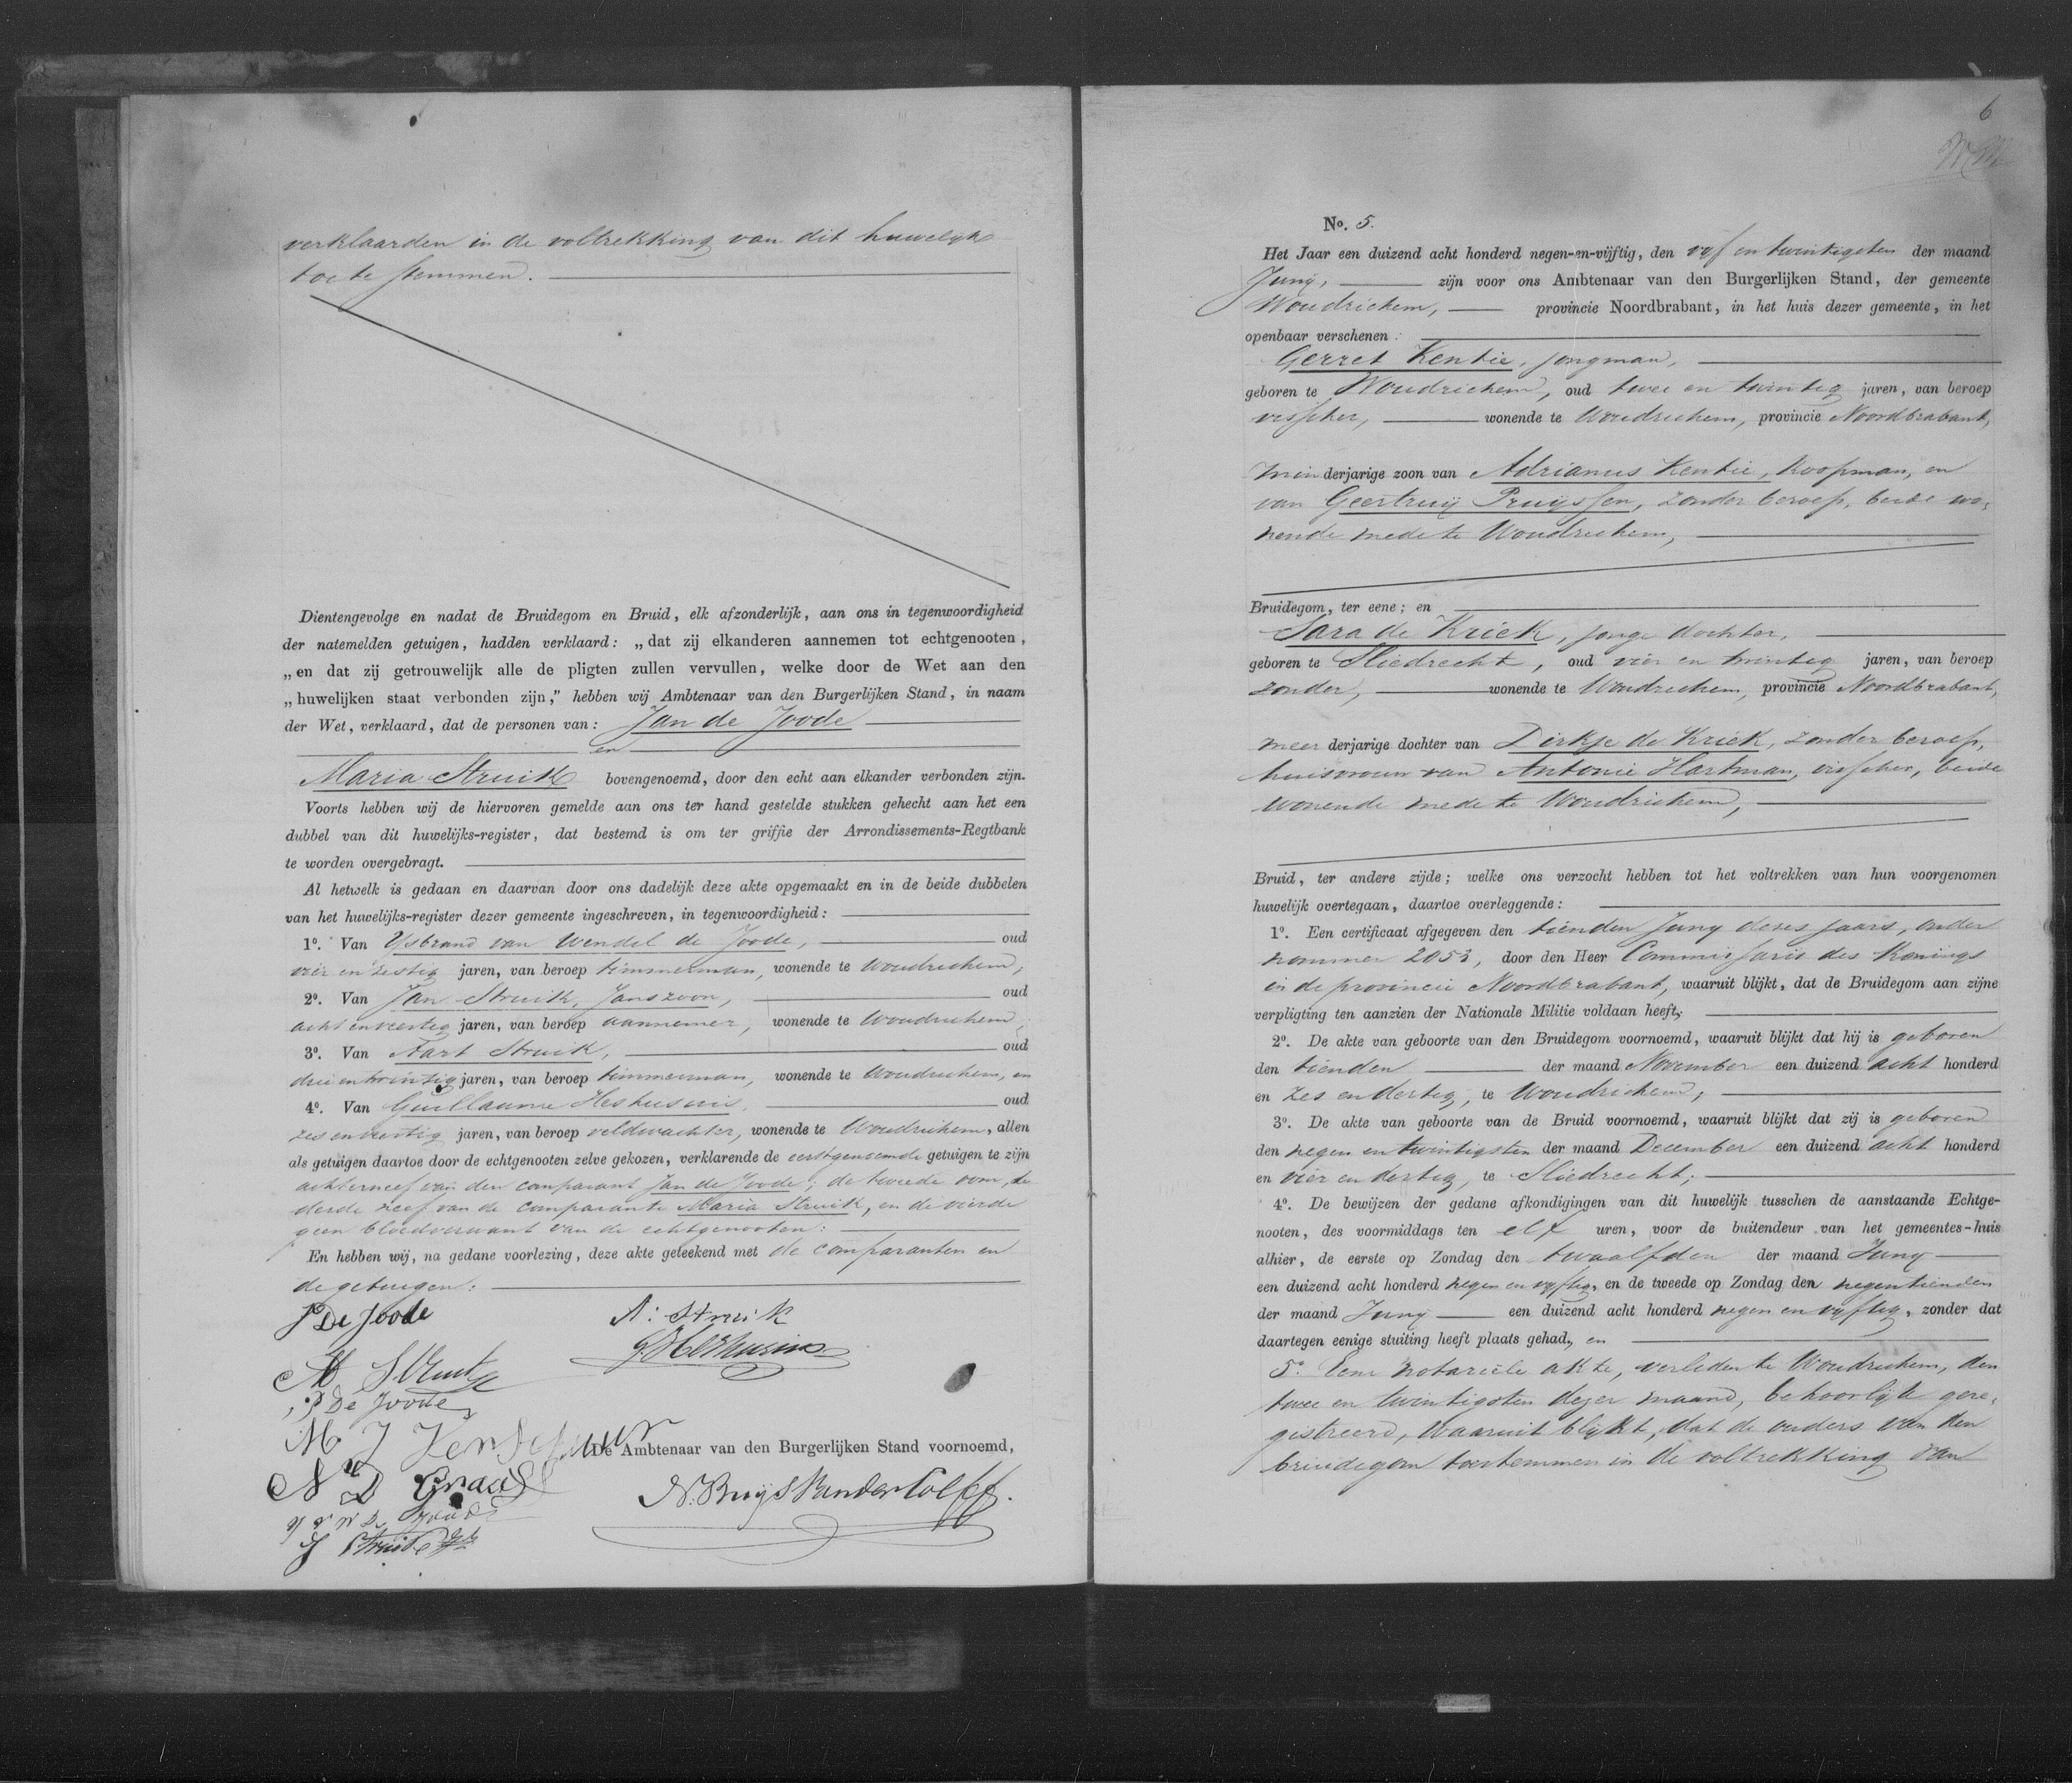 verklaarden in de voltrekking van dit huwelijk
toe te stemmen.
Dientengevolge en nadat de Bruidegom en Bruid, elk afzonderlijk, aan ons in tegenwoordigheid
der natemelden getuigen, hadden verklaard: „dat zij elkanderen aannemen tot echtgenooten,
„en dat zij getrouwelijk alle de pligten zullen vervullen, welke door de Wet aan den
„huwelijken staat verbonden zijn,” hebben wij Ambtenaar van den Burgerlijken Stand, in naam
der Wet, verklaard, dat de personen van: Jan de Joode
en
Maria Struik bovengenoemd, door den echt aan elkander verbonden zijn.
Voorts hebben wij de hiervoren gemelde aan ons ter hand gestelde stukken gehecht aan het een
dubbel van dit huwelijks-register, dat bestemd is om ter griffie der Arrondissements-Regtbank
te worden overgebragt.
Al hetwelk is gedaan en daarvan door ons dadelijk deze akte opgemaakt en in de beide dubbelen
van het huwelijks-register dezer gemeente ingeschreven, in tegenwoordigheid:
1º. Van Ysbrand van Wendel de Joode, oud
vier en zestig jaren, van beroep timmerman, wonende te Woudrichem,
2º. Van Jan Struik, Janszoon, oud
acht en veertig jaren, van beroep aannemer, wonende te Woudrichem,
3º. Van Aart Struik, oud
drie en twintig jaren, van beroep timmerman, wonende te Woudrichem, en
4º. Van Guillaume Heshusius, oud
zes en veertig jaren, van beroep veldwachter, wonende te Woudrichem, allen
als getuigen daartoe door de echtgenooten zelve gekozen, verklarende de eerstgenoemde getuigen te zijn
achterneef van den comparant Jan de Joode; de tweede oom, de
derde neef van de comparante Maria Struik, en de vierde
geen bloedverwant van de echtgenooten:
En hebben wij, na gedane voorlezing, deze akte geteekend met de comparanten en
de getuigen:
J De Joode
A: Struik
M Struik
G Heshusius
P De Joode
M J
De Ambtenaar van den Burgerlijken Stand voornoemd,
N D Graaf
N. Buijs van der Colff.
Y v W De Joode
J Struik Jz
6
No. 5.
Het Jaar een duizend acht honderd negen-en-vijftig, den vyf en twintigsten der maand
Juny, zijn voor ons Ambtenaar van den Burgerlijken Stand, der gemeente
Woudrichem, provincie Noordbrabant, in het huis dezer gemeente, in het
openbaar verschenen:
Gerret Kentie, jongman,
geboren te Woudrichem, oud twee en twintig jaren, van beroep
visscher, wonende te Woudrichem, provincie Noordbrabant,
minderjarige zoon van Adrianus Kentie, koopman, en
van Geertruij Pruijssen, zonder beroep, beide wo-
nende mede te Woudrichem,
Bruidegom, ter eene; en
Sara de Kriek, jonge dochter,
geboren te Sliedrecht, oud vier en twintig jaren, van beroep
zonder, wonende te Woudrichem, provincie Noordbrabant,
meerderjarige dochter van Dirkje de Kriek, zonder beroep,
huisvrouw van Antonie Hartman, visscher, beide
wonende mede te Woudrichem,
Bruid, ter andere zijde; welke ons verzocht hebben tot het voltrekken van hun voorgenomen
huwelijk overtegaan, daartoe overleggende:
1º. Een certificaat afgegeven den tienden Juny dezes jaars, onder
nommer 2053, door den Heer Commissaris des Konings
in de provincie Noordbrabant, waaruit blijkt, dat de Bruidegom aan zijne
verpligting ten aanzien der Nationale Militie voldaan heeft;
2º. De akte van geboorte van den Bruidegom voornoemd, waaruit blijkt dat hij is geboren
den tienden der maand November een duizend acht honderd
en zes en dertig, te Woudrichem;
3º. De akte van geboorte van de Bruid voornoemd, waaruit blijkt dat zij is geboren
den negen en twintigsten der maand December een duizend acht honderd
en vier en dertig, te Sliedrecht;
4º. De bewijzen der gedane afkondigingen van dit huwelijk tusschen de aanstaande Echtge-
nooten, des voormiddags ten elf uren, voor de buitendeur van het gemeentes-huis
alhier, de eerste op Zondag den twaalfden der maand Juny
een duizend acht honderd negen en vyftig, en de tweede op Zondag den negentienden
der maand Juny een duizend acht honderd negen en vyftig, zonder dat
daartegen eenige stuiting heeft plaats gehad, en
5º. Eene notariele akte, verleden te Woudrichem, den
twee en twintigsten dezer maand, behoorlijk gere-
gistreerd, waaruit blijkt, dat de ouders van den
bruidegom toestemmen in de voltrekking van